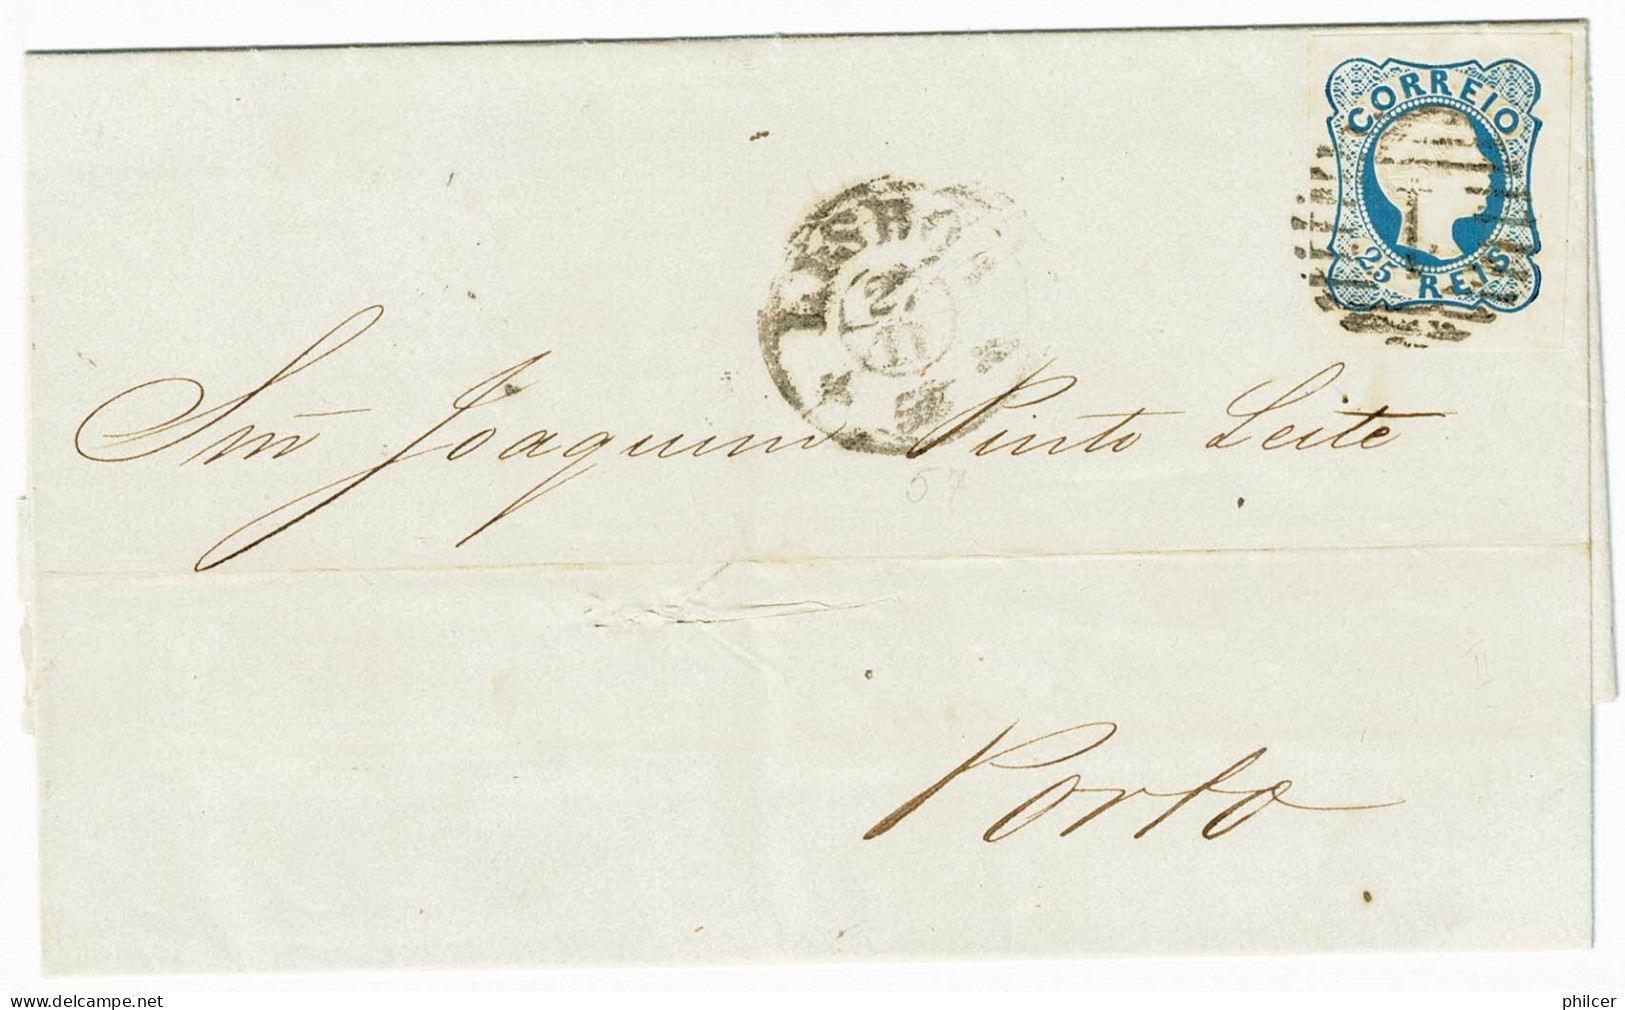 CORREIO
1
25 REIS
LISBOA
11
Snr Joaquim Pinto Leite
57
II
Porto
delcampe.net
philcer